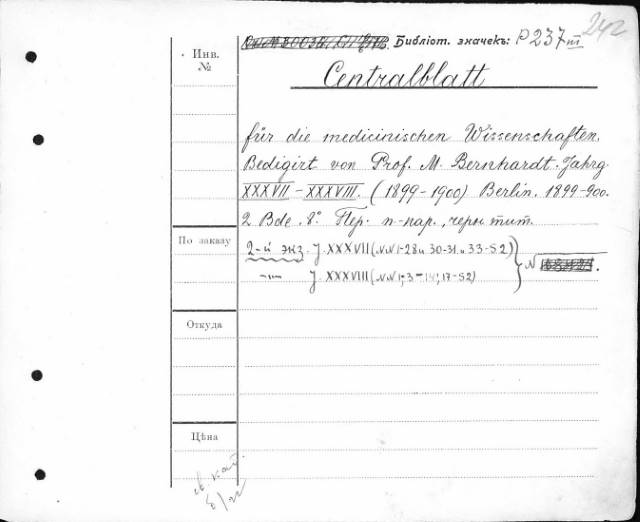 Библіот. значекъ: P 237 III
242
Инв.
№
Centralblatt
für die medicinischen Wissenschaften.
Redigirt von Prof. M. Bernhardt. Jahrg.
XXXVII – XXXVIII. (1899-1900) Berlin. 1899-900.
2 Bde. 8°. Пер. п-кар., черн. тит.
По заказу
2-й экз. J. XXXVII (№№ 1-28 и 30-31 и 33-52)
J. XXXVIII (№№ 1, 3- 17-52)
№
Откуда
Цѣна